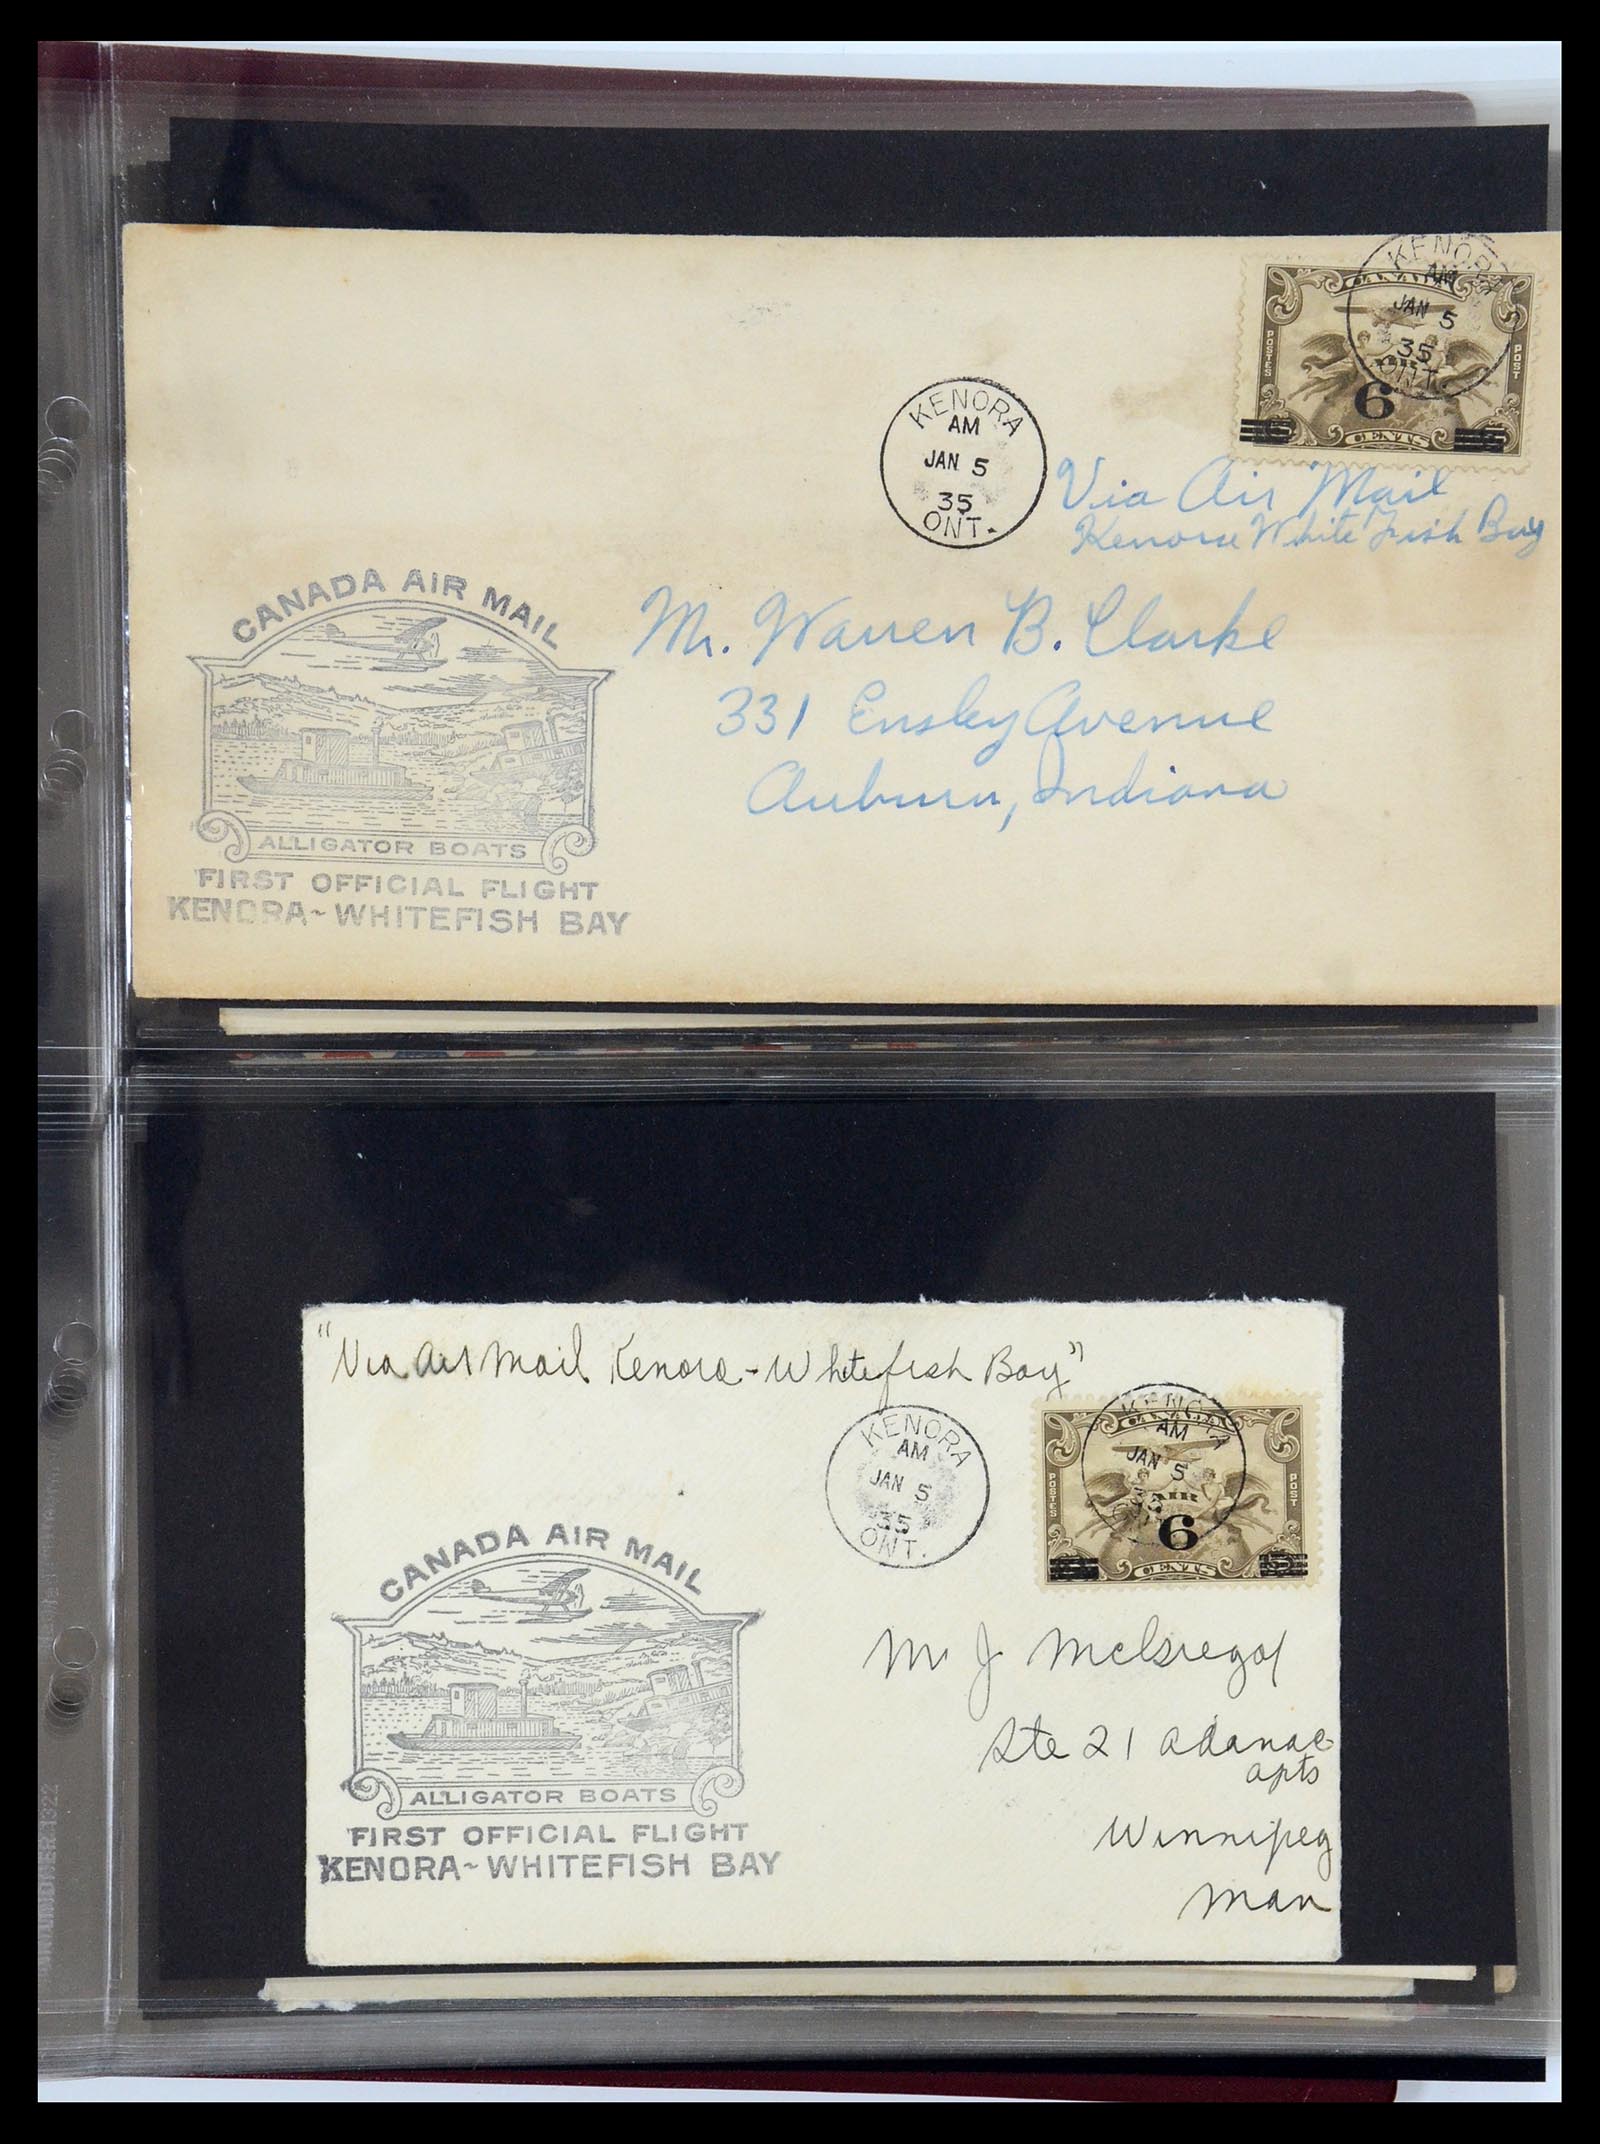 CANADA
POSTES
POST
AIR
6
CENTS
KENORA
AM
JAN 5
35
ONT.
KENORA
AM
JAN 5
35
ONT.
Via Air Mail
Kenora White Fish Bay
Mr. Warren B. Clarke
331 Ensley Avenue
Auburn, Indiana
CANADA AIR MAIL
ALLIGATOR BOATS
FIRST OFFICIAL FLIGHT
KENORA~WHITEFISH BAY
"Via Air Mail Kenora - Whitefish Bay"
KENORA
AM
JAN 5
35
ONT.
CANADA
POSTES
POST
AIR
6
5
CENTS
KENORA
AM
JAN 5
35
Mr J McGregor
Ste 21 Adanac
apts
Winnipeg
Man
CANADA AIR MAIL
ALLIGATOR BOATS
FIRST OFFICIAL FLIGHT
KENORA~WHITEFISH BAY